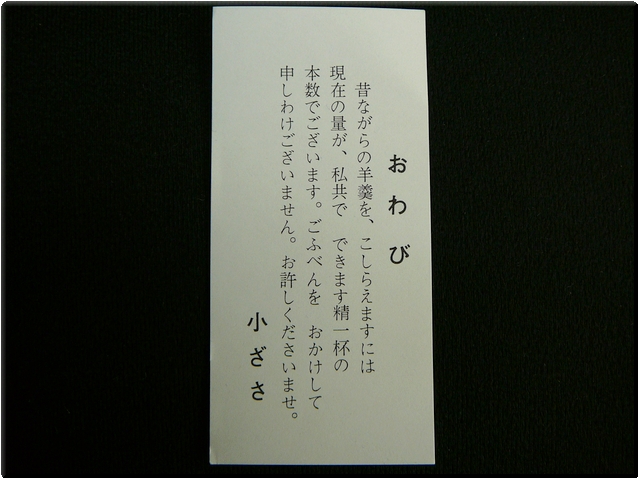 おわび
昔ながらの羊羹を、こしらえますには
現在の量が、私共で　できます精一杯の
本数でございます。ごふべんを　おかけして
申しわけございません。お許しくださいませ。
小ざさ